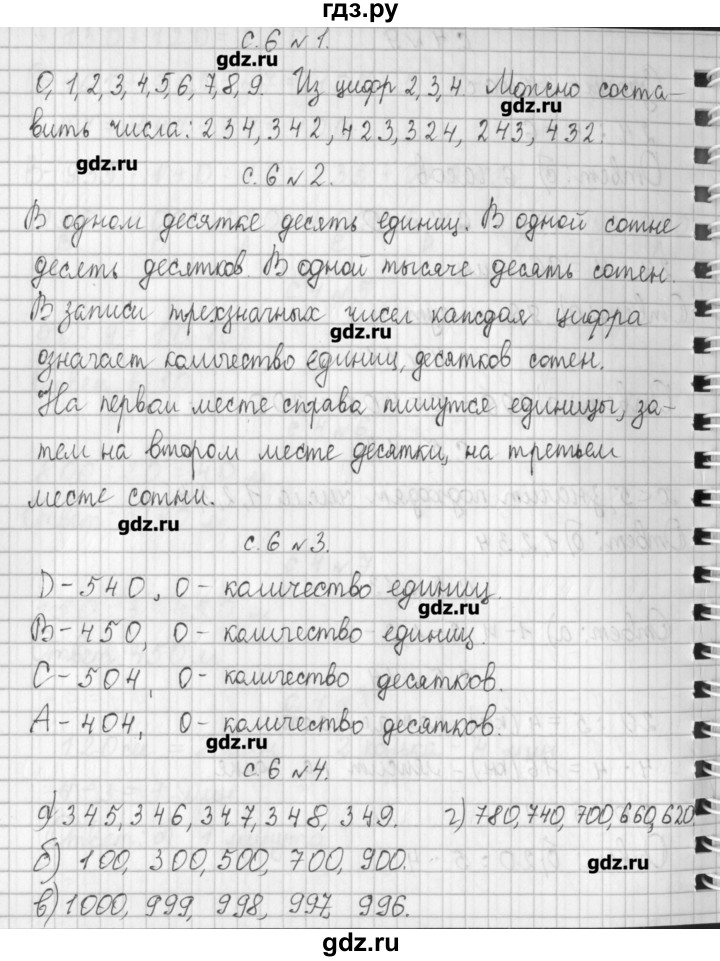 гдз.ру
с. 6 № 1.
gdz.ru
0, 1, 2, 3, 4, 5, 6, 7, 8, 9. Из цифр 2, 3, 4. Можно соста-
gdz.ru
вить числа: 234, 342, 423, 324, 243, 432.
gdz.ru
с. 6 № 2.
В одном десятке десять единиц. В одной сотне
десять десятков. В одной тысяче десять сотен.
gdz.ru
В записи трехзначных чисел каждая цифра
gdz.ru
означает количество единиц, десятков сотен.
На первом месте справа пишутся единицы, за-
тем на втором месте десятки, на третьем
месте сотни.
gdz.ru
с. 6 № 3.
D - 540, 0 - количество единиц.
gdz.ru
В - 450, 0 - количество единиц.
С - 504, 0 - количество десятков.
А - 404, 0 - количество десятков.
gdz.ru
с. 6 № 4.
а) 345, 346, 347, 348, 349. г) 780, 740, 700, 660, 620
б) 100, 300, 500, 700, 900.
gdz.ru
в) 1000, 999, 998, 997, 996.
gdz.ru